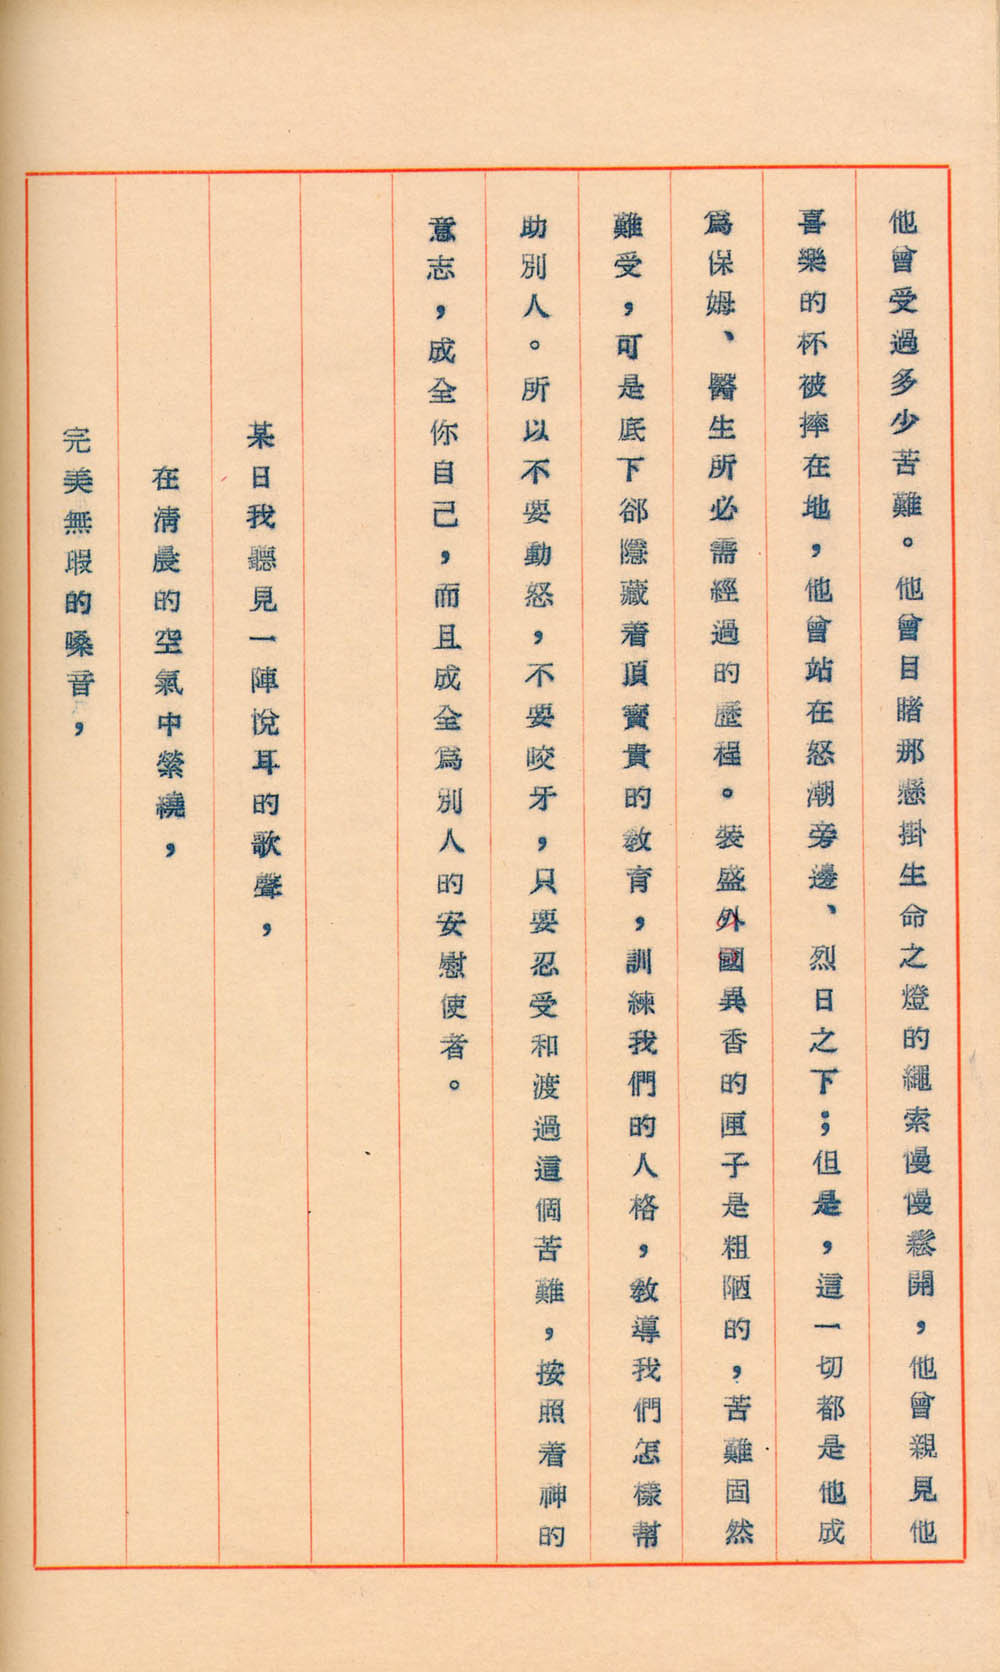 他曾受過多少苦難。他曾目睹那懸掛生命之燈的繩索慢慢鬆開，他曾親見他
喜樂的杯被摔在地，他曾站在怒潮旁邊、烈日之下；但是，這一切都是他成
爲保姆、醫生所必需經過的歷程。裝盛外國異香的匣子是粗陋的，苦難固然
難受，可是底下郤隱藏着頂寶貴的教育，訓練我們的人格，教導我們怎樣幫
助別人。所以不要動怒，不要咬牙，只要忍受和渡過這個苦難，按照着神的
意志，成全你自己，而且成全爲別人的安慰使者。
某日我聽見一陣悅耳的歌聲，
在清晨的空氣中縈繞，
完美無暇的嗓音，